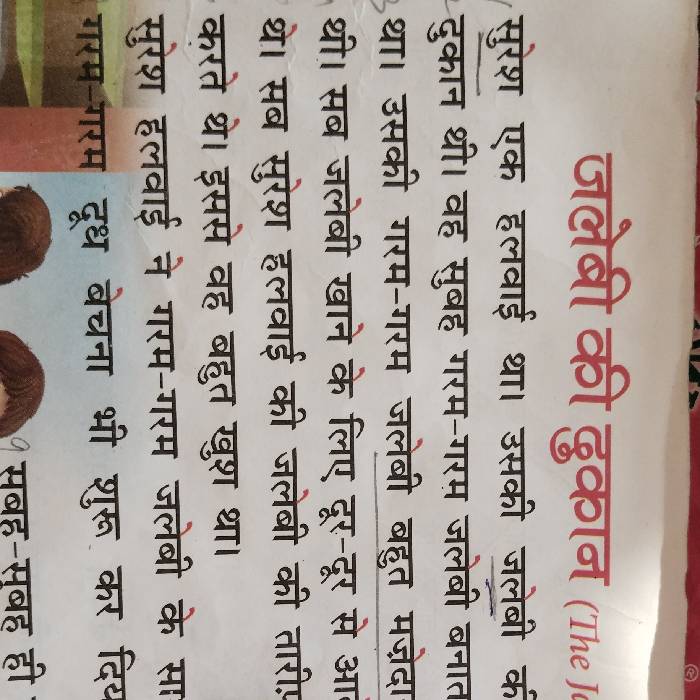 जलेबी की दुकान (The
सुरेश एक हलवाई था। उसकी जलेबी की
दुकान थी। वह सुबह गरम-गरम जलेबी
था। उसकी गरम-गरम जलेबी बहुत
थी। सब जलेबी खाने के लिए दूर-दूर से
थे। सब सुरेश हलवाई की जलेबी की
करते थे। इससे वह बहुत खुश था।
सुरेश हलवाई ने गरम-गरम जलेबी के
गरम-गरम दूध बेचना भी शुरू कर
सुबह-सुबह ही